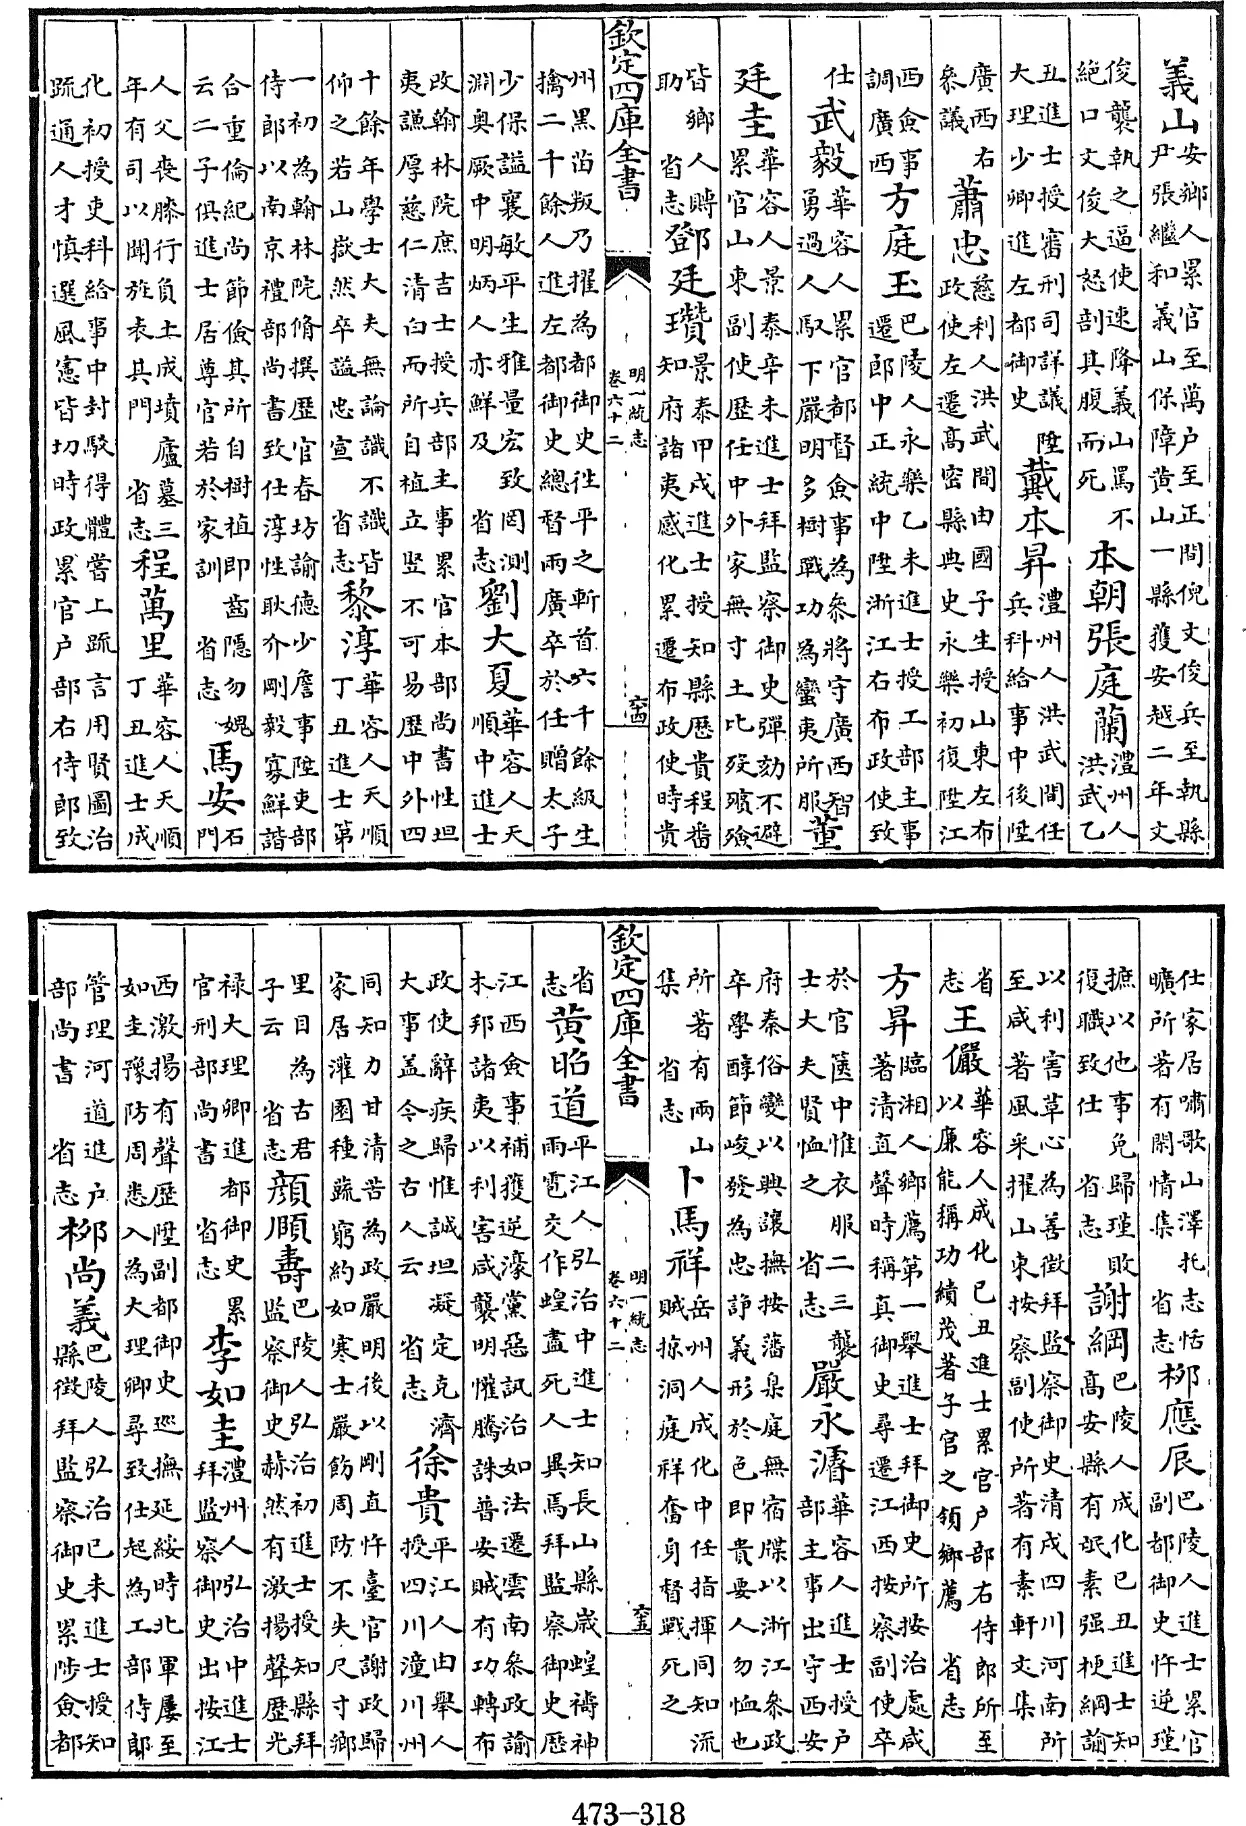 義山安鄉人累官至萬户至正間倪文俊兵至執縣
尹張繼和義山保障黄山一縣獲安越二年文
俊襲執之逼使速降義山罵不
絶口文俊大怒剖其腹而死本朝張庭蘭澧州人
洪武乙
丑進士授審刑司詳議陞
大理少卿進左都御史戴本昇澧州人洪武間任
兵科給事中後陞
廣西右
叅議蕭忠慈利人洪武間由國子生授山東左布
政使左遷髙密縣典史永樂初復陞江
西僉事
調廣西方庭玉巴陵人永樂乙未進士授工部主事
遷郎中正統中陞浙江右布政使致
仕武毅華容人累官都督僉事為叅將守廣西智
勇過人馭下嚴明多樹戰功為蠻夷所服董
廷圭華容人景泰辛未進士拜監察御史彈劾不避
累官山東副使歴任中外家無寸土比歿殯殮
皆鄉人賻
助 省志鄧廷瓚景泰甲戌進士授知縣歴貴程畨
知府諸夷感化累遷布政使時貴
欽定四庫全書
明一統志
卷六十二
六十四
州黑苗叛乃擢為都御史徃平之斬首六千餘級生
擒二千餘人進左都御史總督兩廣卒於任贈太子
少保謚襄敏平生雅量宏致罔測
淵奥厥中明炳人亦鮮及 省志劉大夏華容人天
順中進士
改翰林院庶吉士授兵部主事累官本部尚書性坦
夷謙厚慈仁清白而所自植立竪不可易歴中外四
十餘年學士大夫無論識不識皆
仰之若山嶽然卒謚忠宣 省志黎淳華容人天順
丁丑進士第
一初為翰林院脩撰歴官春坊諭德少詹事陞吏部
侍郎以南京禮部尚書致仕淳性耿介剛毅寡鮮諧
合重倫紀尚節儉其所自樹植即齒隱勿媿
云二子俱進士居尊官若於家訓 省志馬安石
門
人父喪膝行負土成墳廬墓三
年有司以聞旌表其門 省志程萬里華容人天順
丁丑進士成
化初授吏科給事中封駁得體嘗上疏言用賢圖治
疏通人才慎選風憲皆切時政累官户部右侍郎致
仕家居嘯歌山澤托志恬
曠所著有閑情集 省志柳應辰巴陵人進士累官
副都御史忤逆瑾
摭以他事免歸瑾敗
復職致仕 省志謝綱巴陵人成化己丑進士知
髙安縣有氓素强梗綱諭
以利害革心為善徴拜監察御史清戎四川河南所
至咸著風采擢山東按察副使所著有素軒文集
省
志王儼華容人成化己丑進士累官户部右侍郎所至
以廉能稱功績茂著子官之領鄉薦 省志
方昇臨湘人鄉薦第一舉進士拜御史所按治處咸
著清直聲時稱真御史尋遷江西按察副使卒
於官篋中惟衣服二三襲
士大夫賢恤之 省志嚴永濬華容人進士授户
部主事出守西安
府秦俗變以興讓撫按藩臬庭無宿牒以浙江叅政
卒學醇節峻發為忠諍義形於色即貴要人勿恤也
所著有兩山
集 省志卜馬祥岳州人成化中任指揮同知流
賊掠洞庭祥奮身督戰死之
欽定四庫全書
明一統志
卷六十二
六十五
省
志黄昭道平江人弘治中進士知長山縣歲蝗禱神
雨雹交作蝗盡死人異焉拜監察御史歴
江西僉事補獲逆濠黨惡訊治如法遷雲南叅政諭
木邦諸夷以利害咸襲明懽騰誅普安賊有功轉布
政使辭疾歸惟誠坦凝定克濟
大事盖今之古人云 省志徐貴平江人由舉人
授四川潼川州
同知力甘清苦為政嚴明後以剛直忤臺官謝政歸
家居灌園種蔬窮約如寒士嚴飭周防不失尺寸鄉
里目為古君
子云 省志顔頤壽巴陵人弘治初進士授知縣拜
監察御史赫然有激揚聲歴光
禄大理卿進都御史累
官刑部尚書 省志李如圭澧州人弘治中進士
拜監察御史出按江
西激揚有聲歴陞副都御史巡撫延綏時北軍屢至
如圭豫防周悉入為大理卿尋致仕起為工部侍郎
管理河道進户
部尚書 省志柳尚義巴陵人弘治己未進士授知
縣徴拜監察御史累陟僉都
473-318